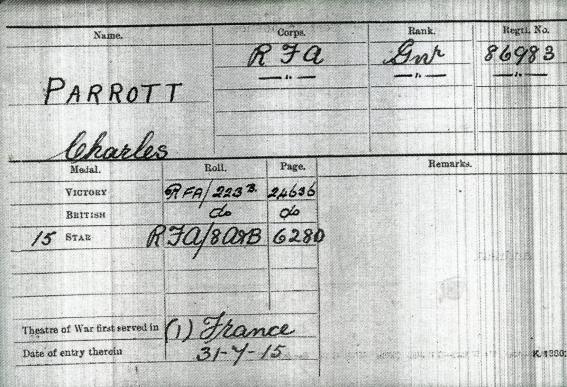 Name. Corps. Rank. Regtl. No.
R F A Gnr 86983
PARROTT — „ — — „ — — „ —
Charles
Medal. Roll. Page. Remarks.
VICTORY RFA/223 B. 24636
BRITISH do do
15 STAR RFA/8A&B 628D
Theatre of War first served in (1) France
Date of entry therein 31-7-15